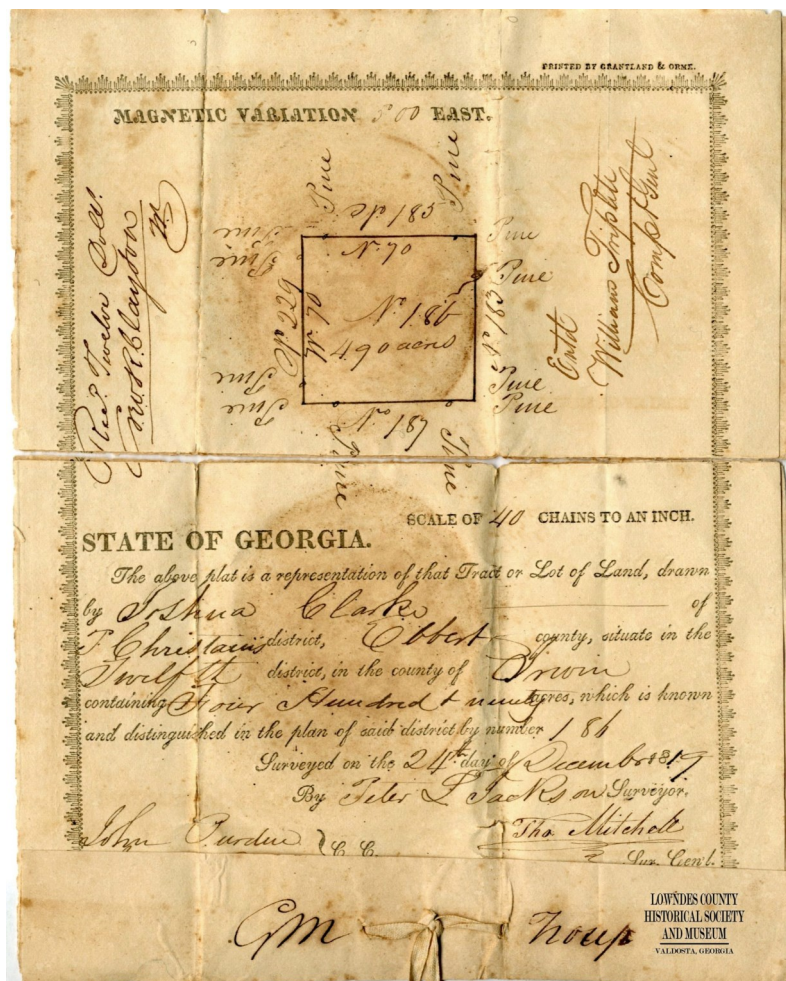 PRINTED BY GRANTLAND & ORME.
MAGNETIC VARIATION 5 00 EAST.
Pine
Pine
No 185
Pine
Pine
No 70
Pine
Pine
No 227
W. 70
No 186
490 acres
No 183
Pine
Pine
Pine
Pine
No 187
Pine
Pine
Recd. Twelve Dolls.
Clayton
Entd
William Triplett
Comp. Genl
SCALE OF 40 CHAINS TO AN INCH.
STATE OF GEORGIA.
The above plat is a representation of that Tract or Lot of Land, drawn
by Joshua Clarke of
T Christains district, Elbert county, situate in the
Twelfth district, in the county of Irwin
containing Four Hundred & ninety acres, which is known
and distinguished in the plan of said district by number 186
Surveyed on the 24th day of December 1819
By Peter L Jackson Surveyor.
John Purdue } C C
Tho Mitchell
Sur. Gen'l.
GM Troup
LOWNDES COUNTY
HISTORICAL SOCIETY
AND MUSEUM
VALDOSTA, GEORGIA